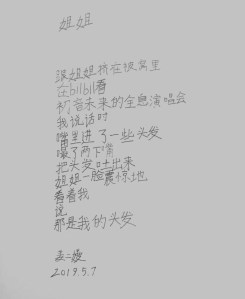 姐姐
跟姐姐挤在被窝里
在bilbil看
初音未来的全息演唱会
我说话时
嘴里进了一些头发
嘬了两下嘴
把头发吐出来
姐姐一脸震惊地
看着我
说
那是我的头发
2019.5.7